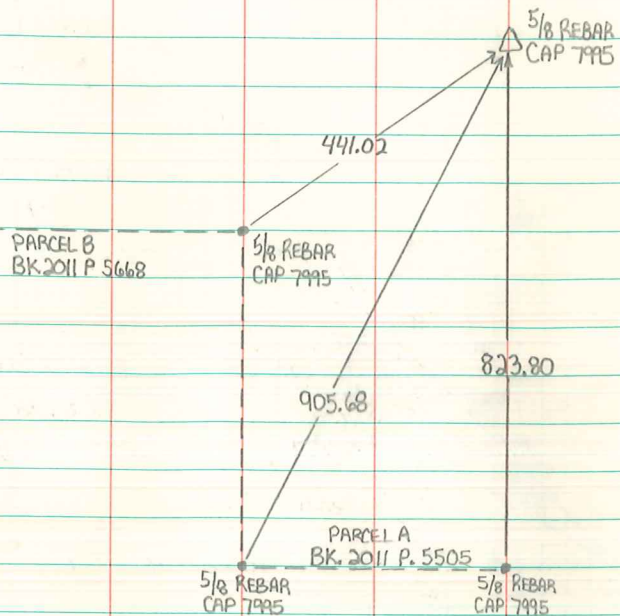 5/8 REBAR
CAP 7995
441.02
PARCEL B
BK 2011 P 5668
5/8 REBAR
CAP 7995
823.80
905.68
PARCEL A
BK. 2011 P. 5505
5/8 REBAR
CAP 7995
5/8 REBAR
CAP 7995